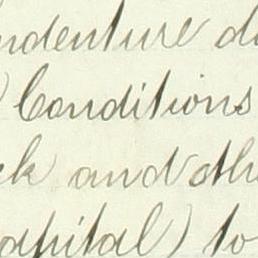 ndenture d
) Conditions
ck and oth
apital) to